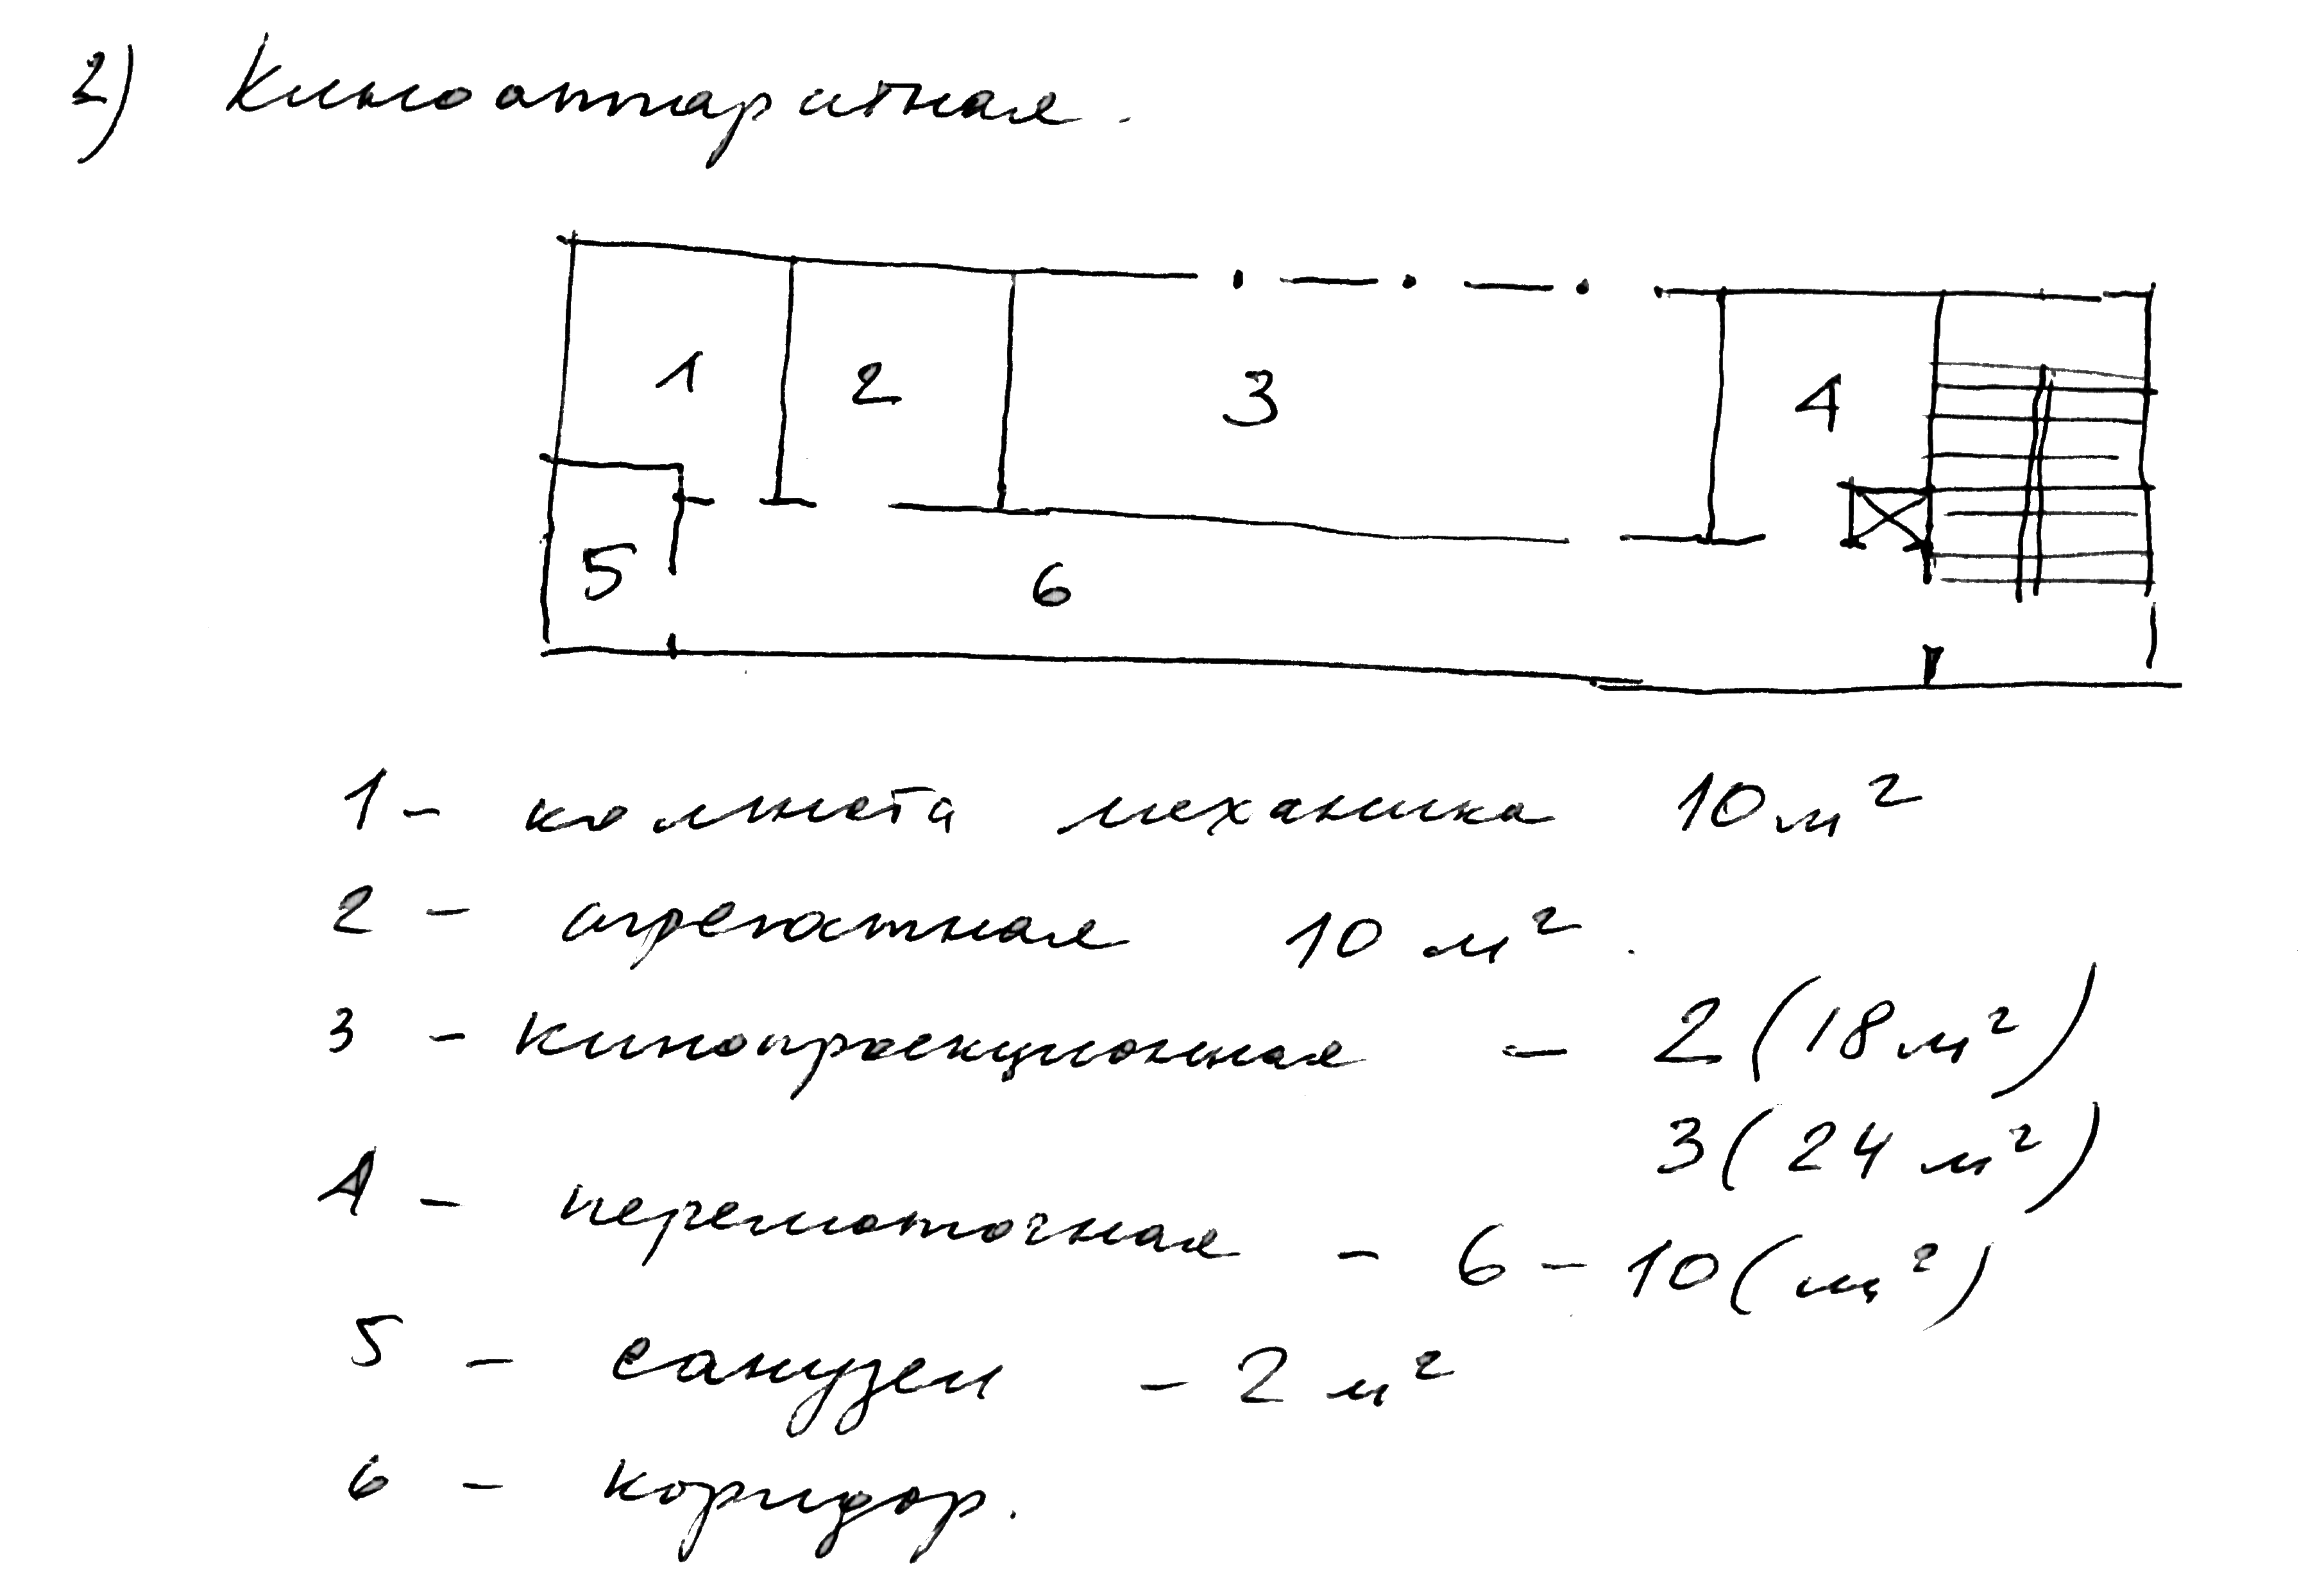 2) Киноаппаратная.
1 2 3 4
5 6
1 - комната механика 10 м²
2 - агрегатная 10 м².
3 - кинопроекционная - 2 (18 м²)
3 (24 м²)
4 - перемоточная - 6 - 10 (м²)
5 - санузел - 2 м²
6 - коридор.